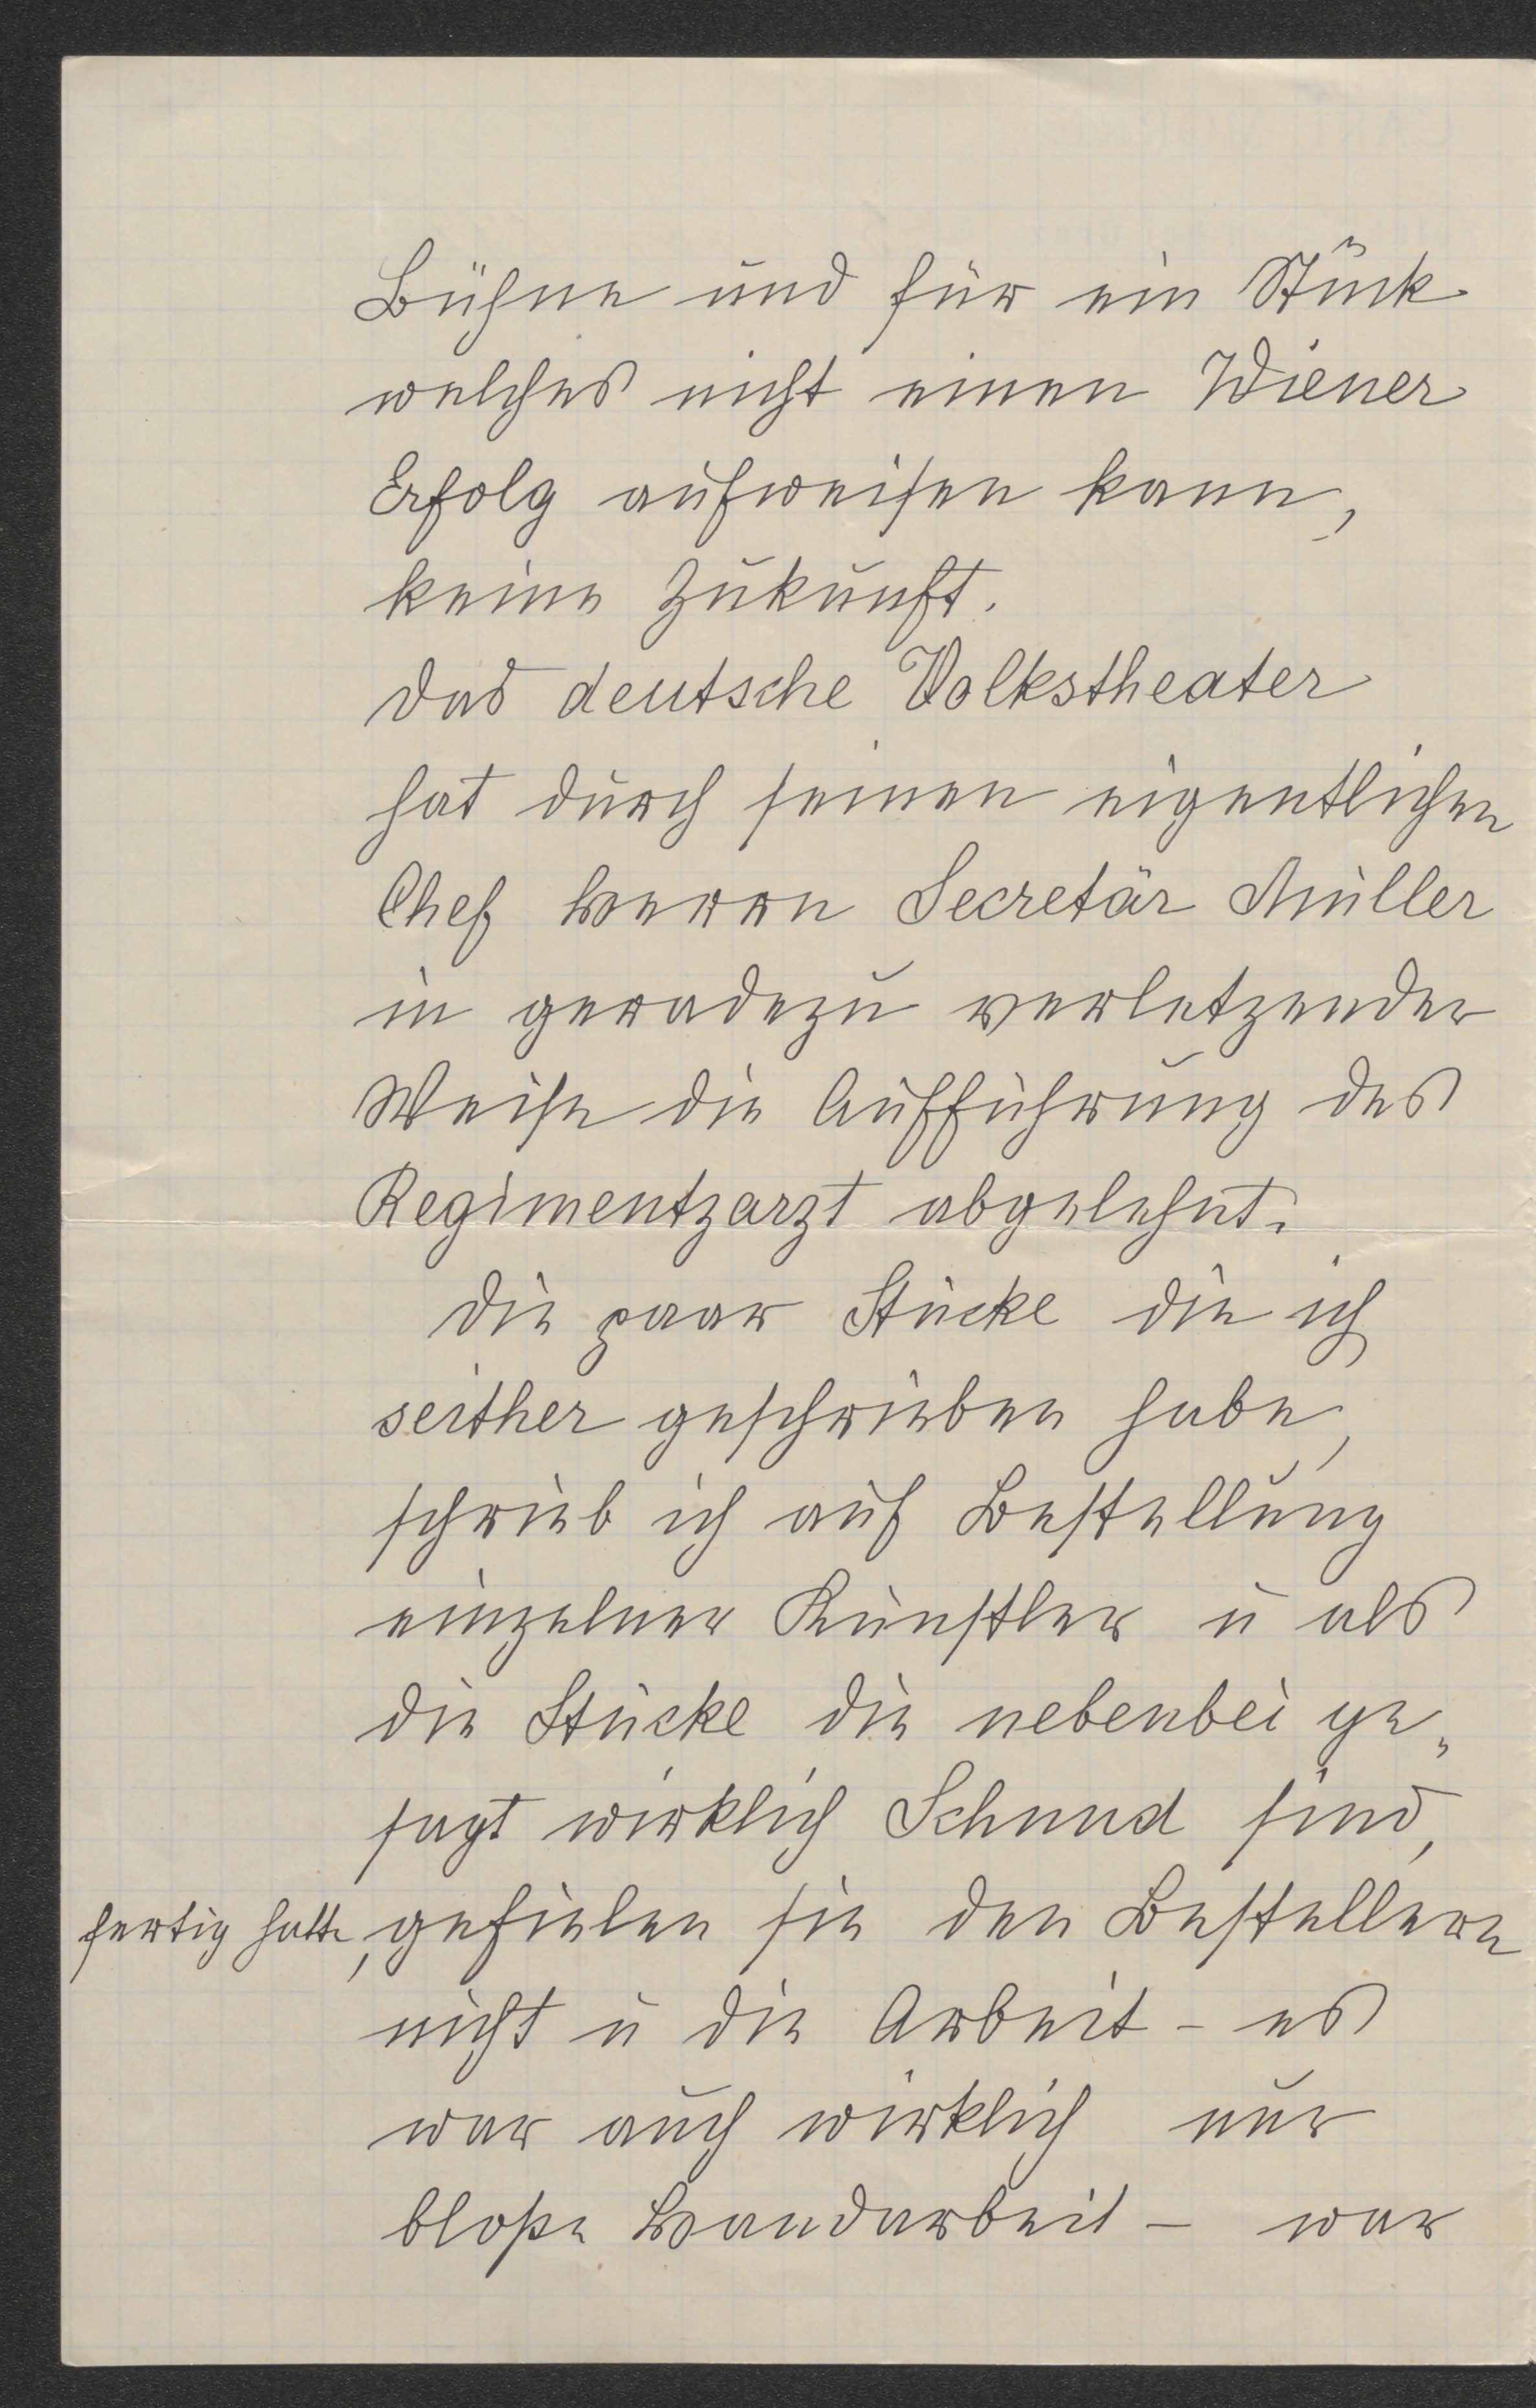 Bühne und für ein Stück
welches nicht einen Wiener
Erfolg aufweisen kann,
keine Zukunft.
Das deutsche Volkstheater
hat durch seinen eigentlichen
Chef Herrn Secretär Müller
in geradezu verletzender
Weise die Aufführung des
Regimentzarzt abgelehnt.
Die paar Stücke die ich
seither geschrieben habe,
schrieb ich auf Bestellung
einzelner Künstler u als
die Stücke die nebenbei ge„
sagt wirklich Schund sind,
fertig hatte, gefielen sie den Bestellern
nicht u die Arbeit – es
war auch wirklich nur
bloße Handarbeit – war